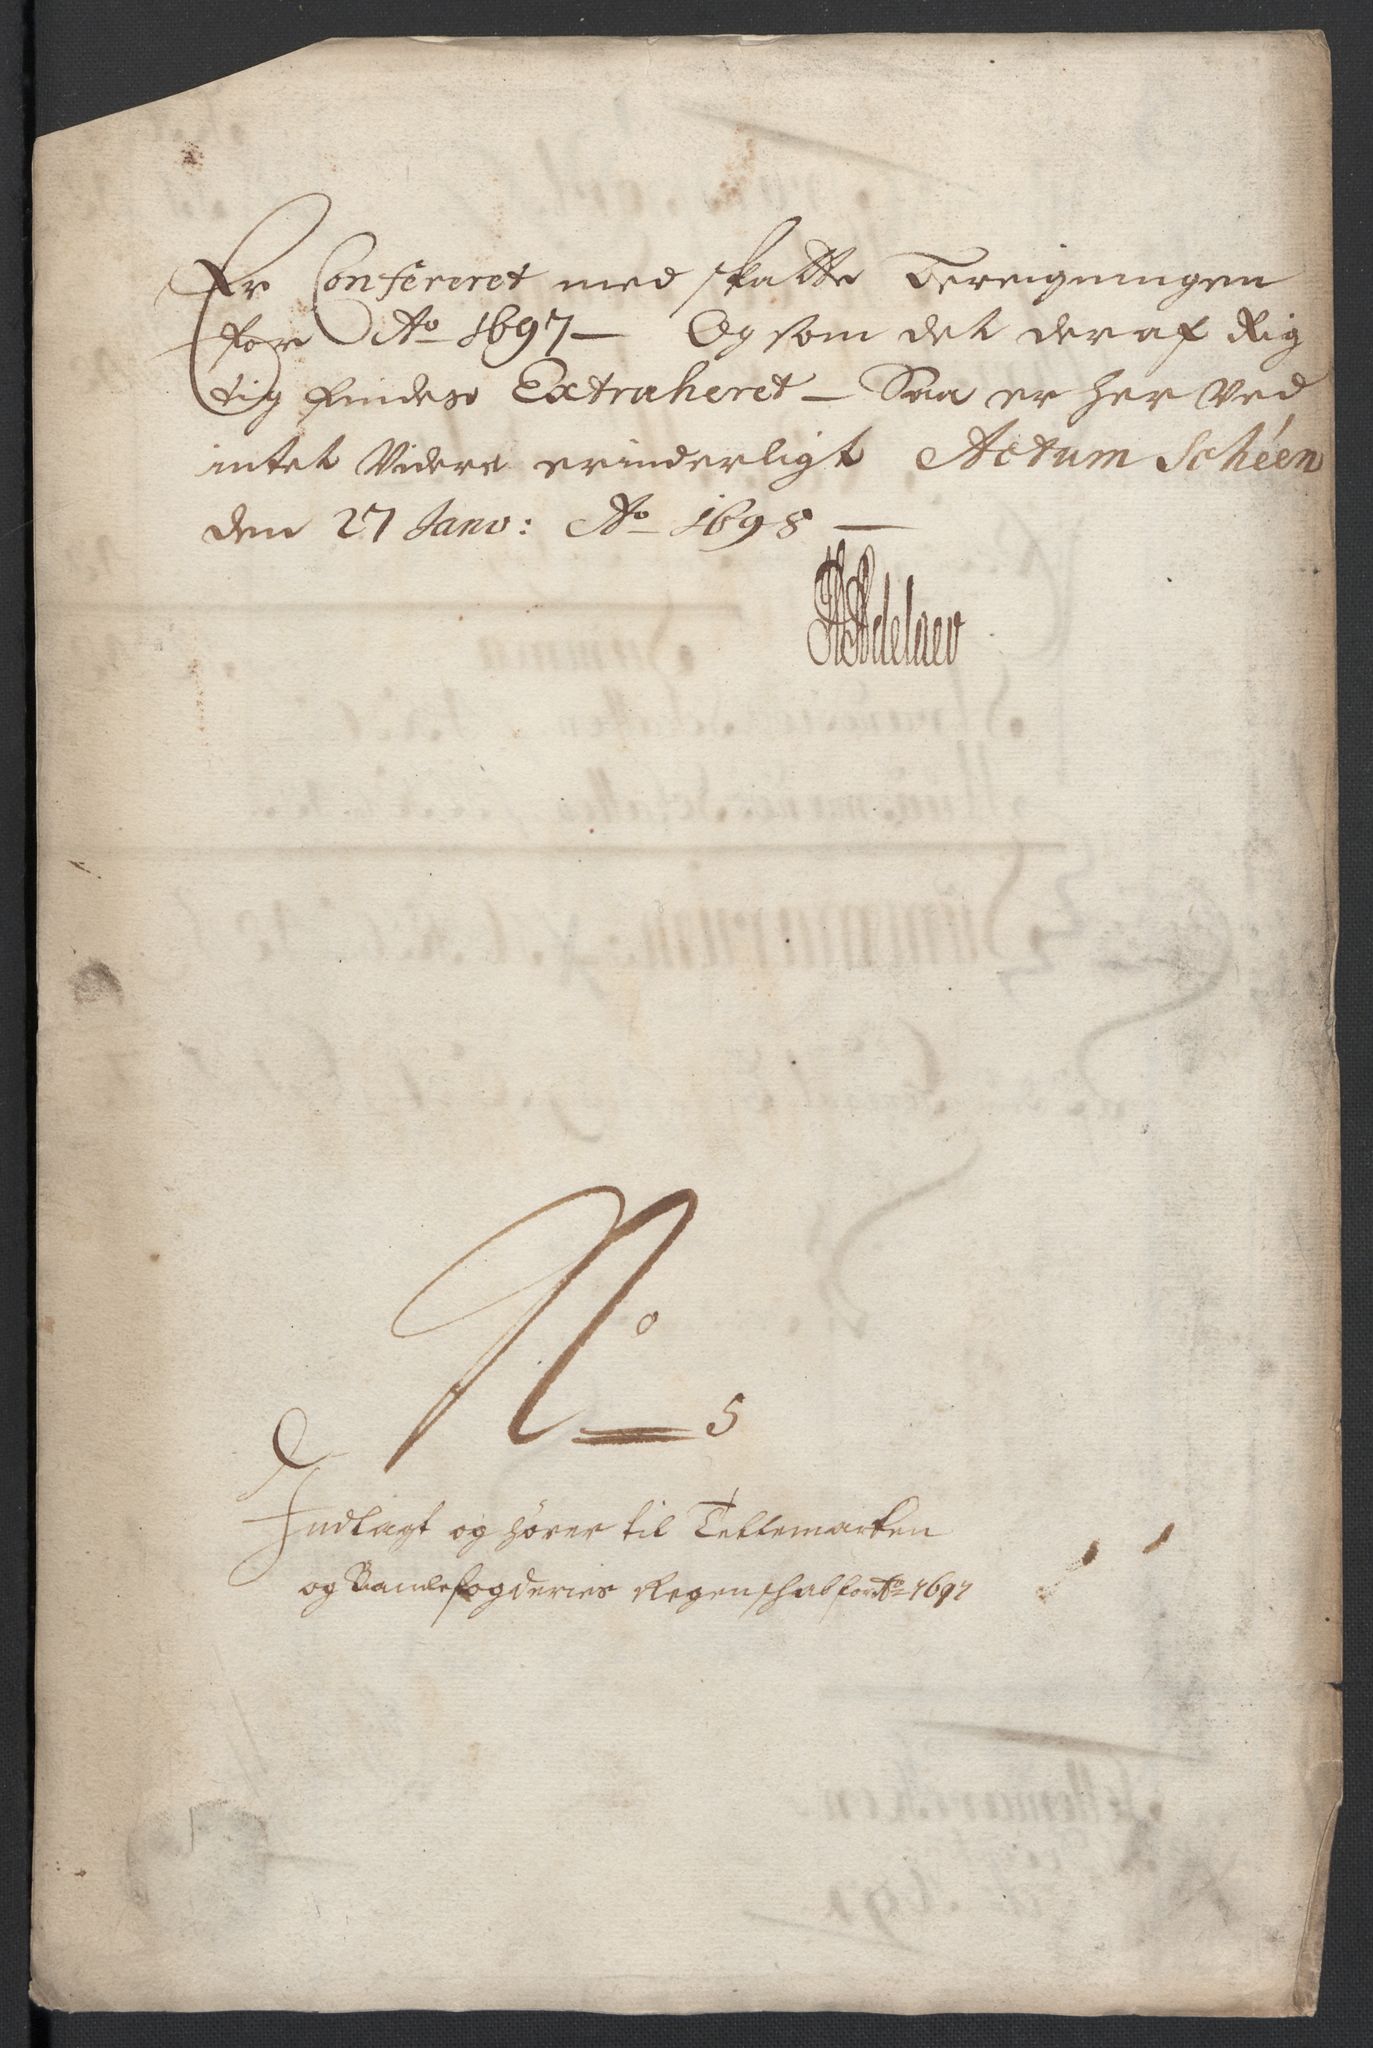 Er Confereret med skatte Bereigningen
for Ao 1697 — Og som det deraf Rig
tig findes Extraheret — Saa er her ved
intet Videre erinderligt Actum Schéen
den 27 Janv: Ao 1698 —
HAdelaer
No 5
Indlagt og hører til Tellemarken
og Bamlefogderies Regenschab for Ao 1697